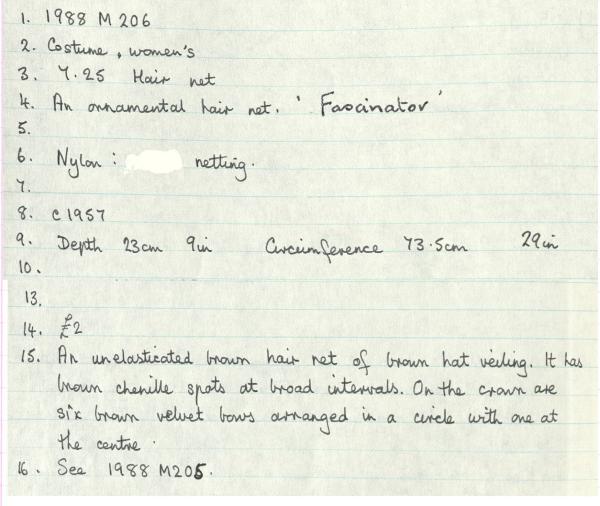 1. 1988 M 206
2. Costume, women's
3. 7.25 Hair net
4. An ornamental hair net. 'Fascinator'
5.
6. Nylon: netting.
7.
8. c1957
9. Depth 23cm 9in Circumference 73.5cm 29in
10.
13.
14. £2
15. An unelasticated brown hair net of brown hat veiling. It has
brown chenille spots at broad intervals. On the crown are
six brown velvet bows arranged in a circle with one at
the centre.
16. See 1988 M205.